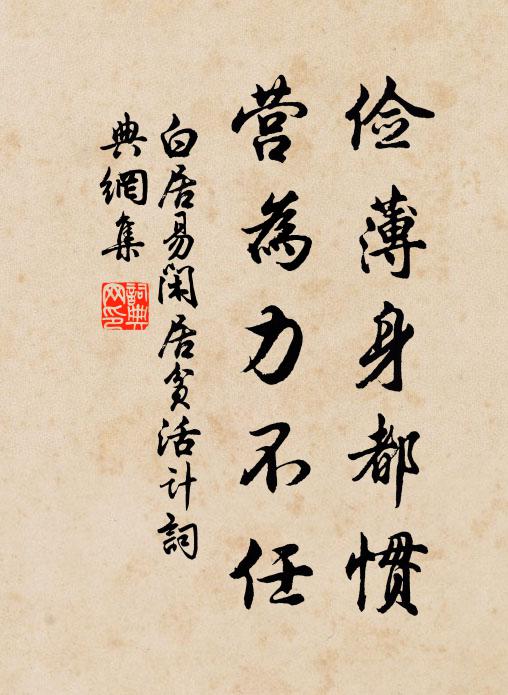 俭薄身都惯
营為力不任
白居易闲居贫活计詞
典網集
詞典
网印